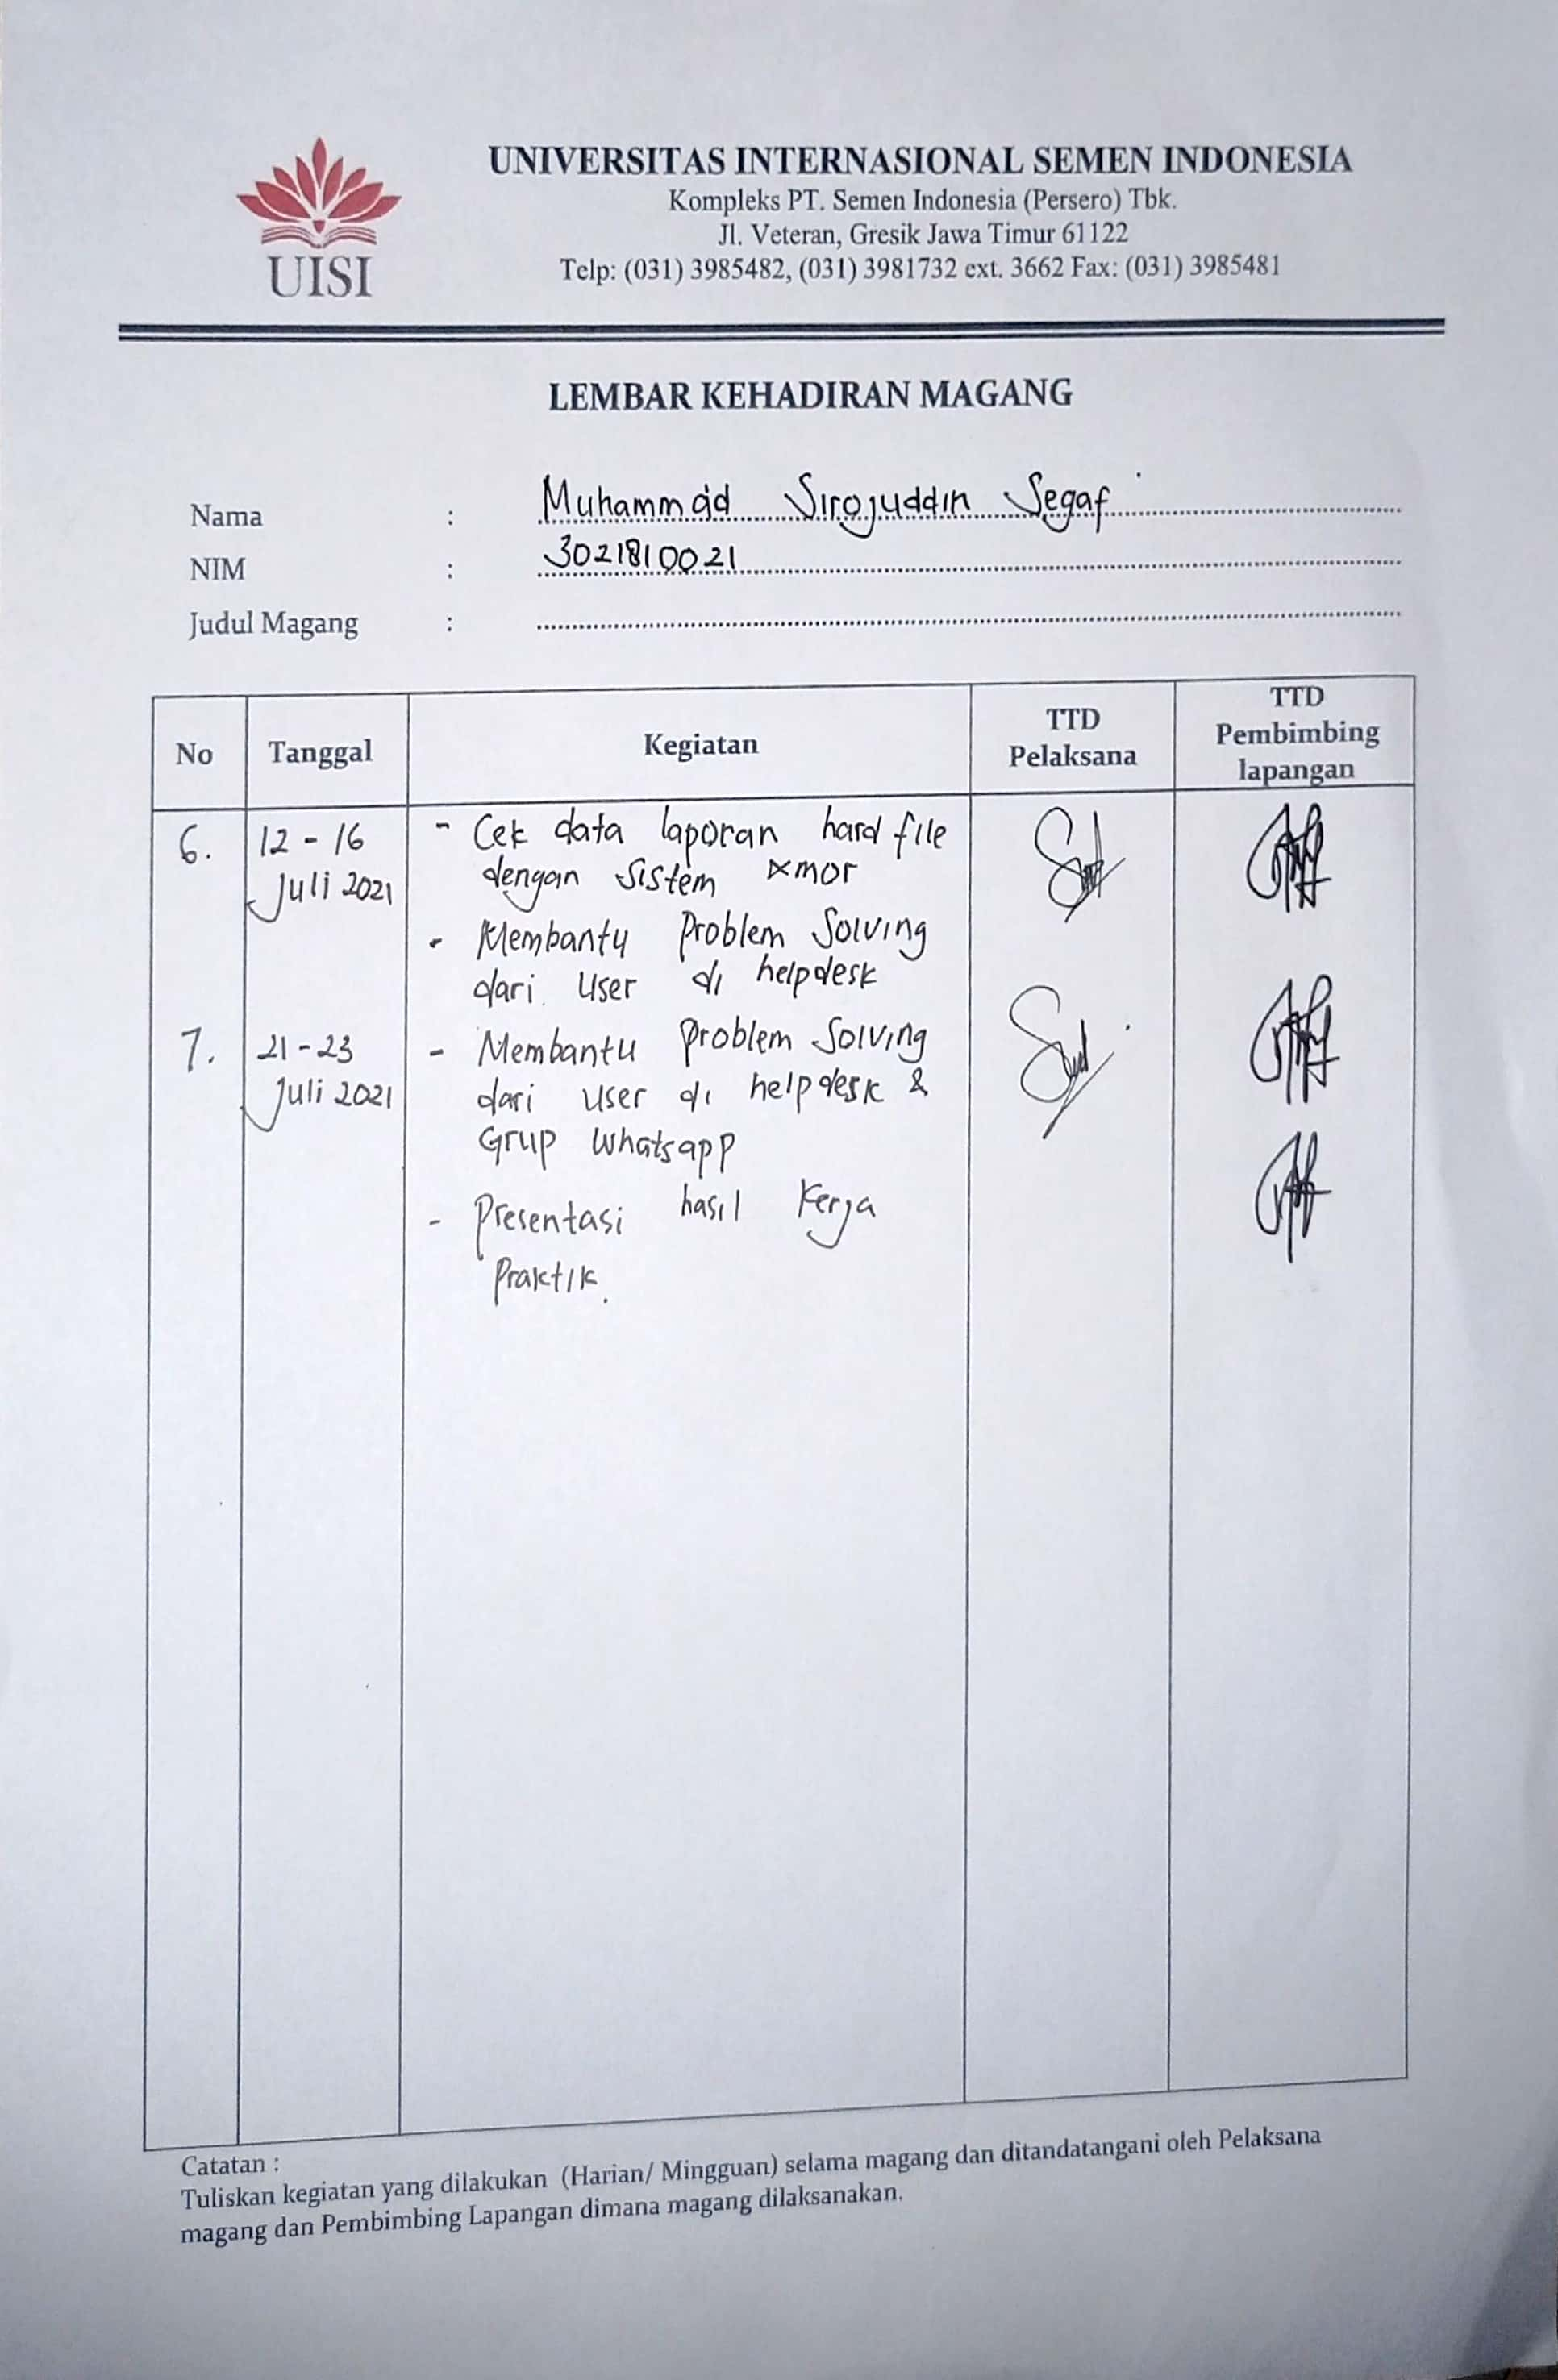 UISI
UNIVERSITAS INTERNASIONAL SEMEN INDONESIA
Kompleks PT. Semen Indonesia (Persero) Tbk.
Jl. Veteran, Gresik Jawa Timur 61122
Telp: (031) 3985482, (031) 3981732 ext. 3662 Fax: (031) 3985481
LEMBAR KEHADIRAN MAGANG
Nama : Muhammad Sirojuddin Segaf
NIM : 3021810021
Judul Magang :
No Tanggal Kegiatan TTD Pelaksana TTD Pembimbing lapangan
6. 12 - 16 - Cek data laporan hard file
Juli 2021 dengan sistem xmor
- Membantu Problem Solving
dari User di helpdesk
7. 21 - 23 - Membantu Problem Solving
Juli 2021 dari User di helpdesk &
Grup Whatsapp
- Presentasi hasil Kerja
Praktik.
Catatan :
Tuliskan kegiatan yang dilakukan (Harian/ Mingguan) selama magang dan ditandatangani oleh Pelaksana
magang dan Pembimbing Lapangan dimana magang dilaksanakan.